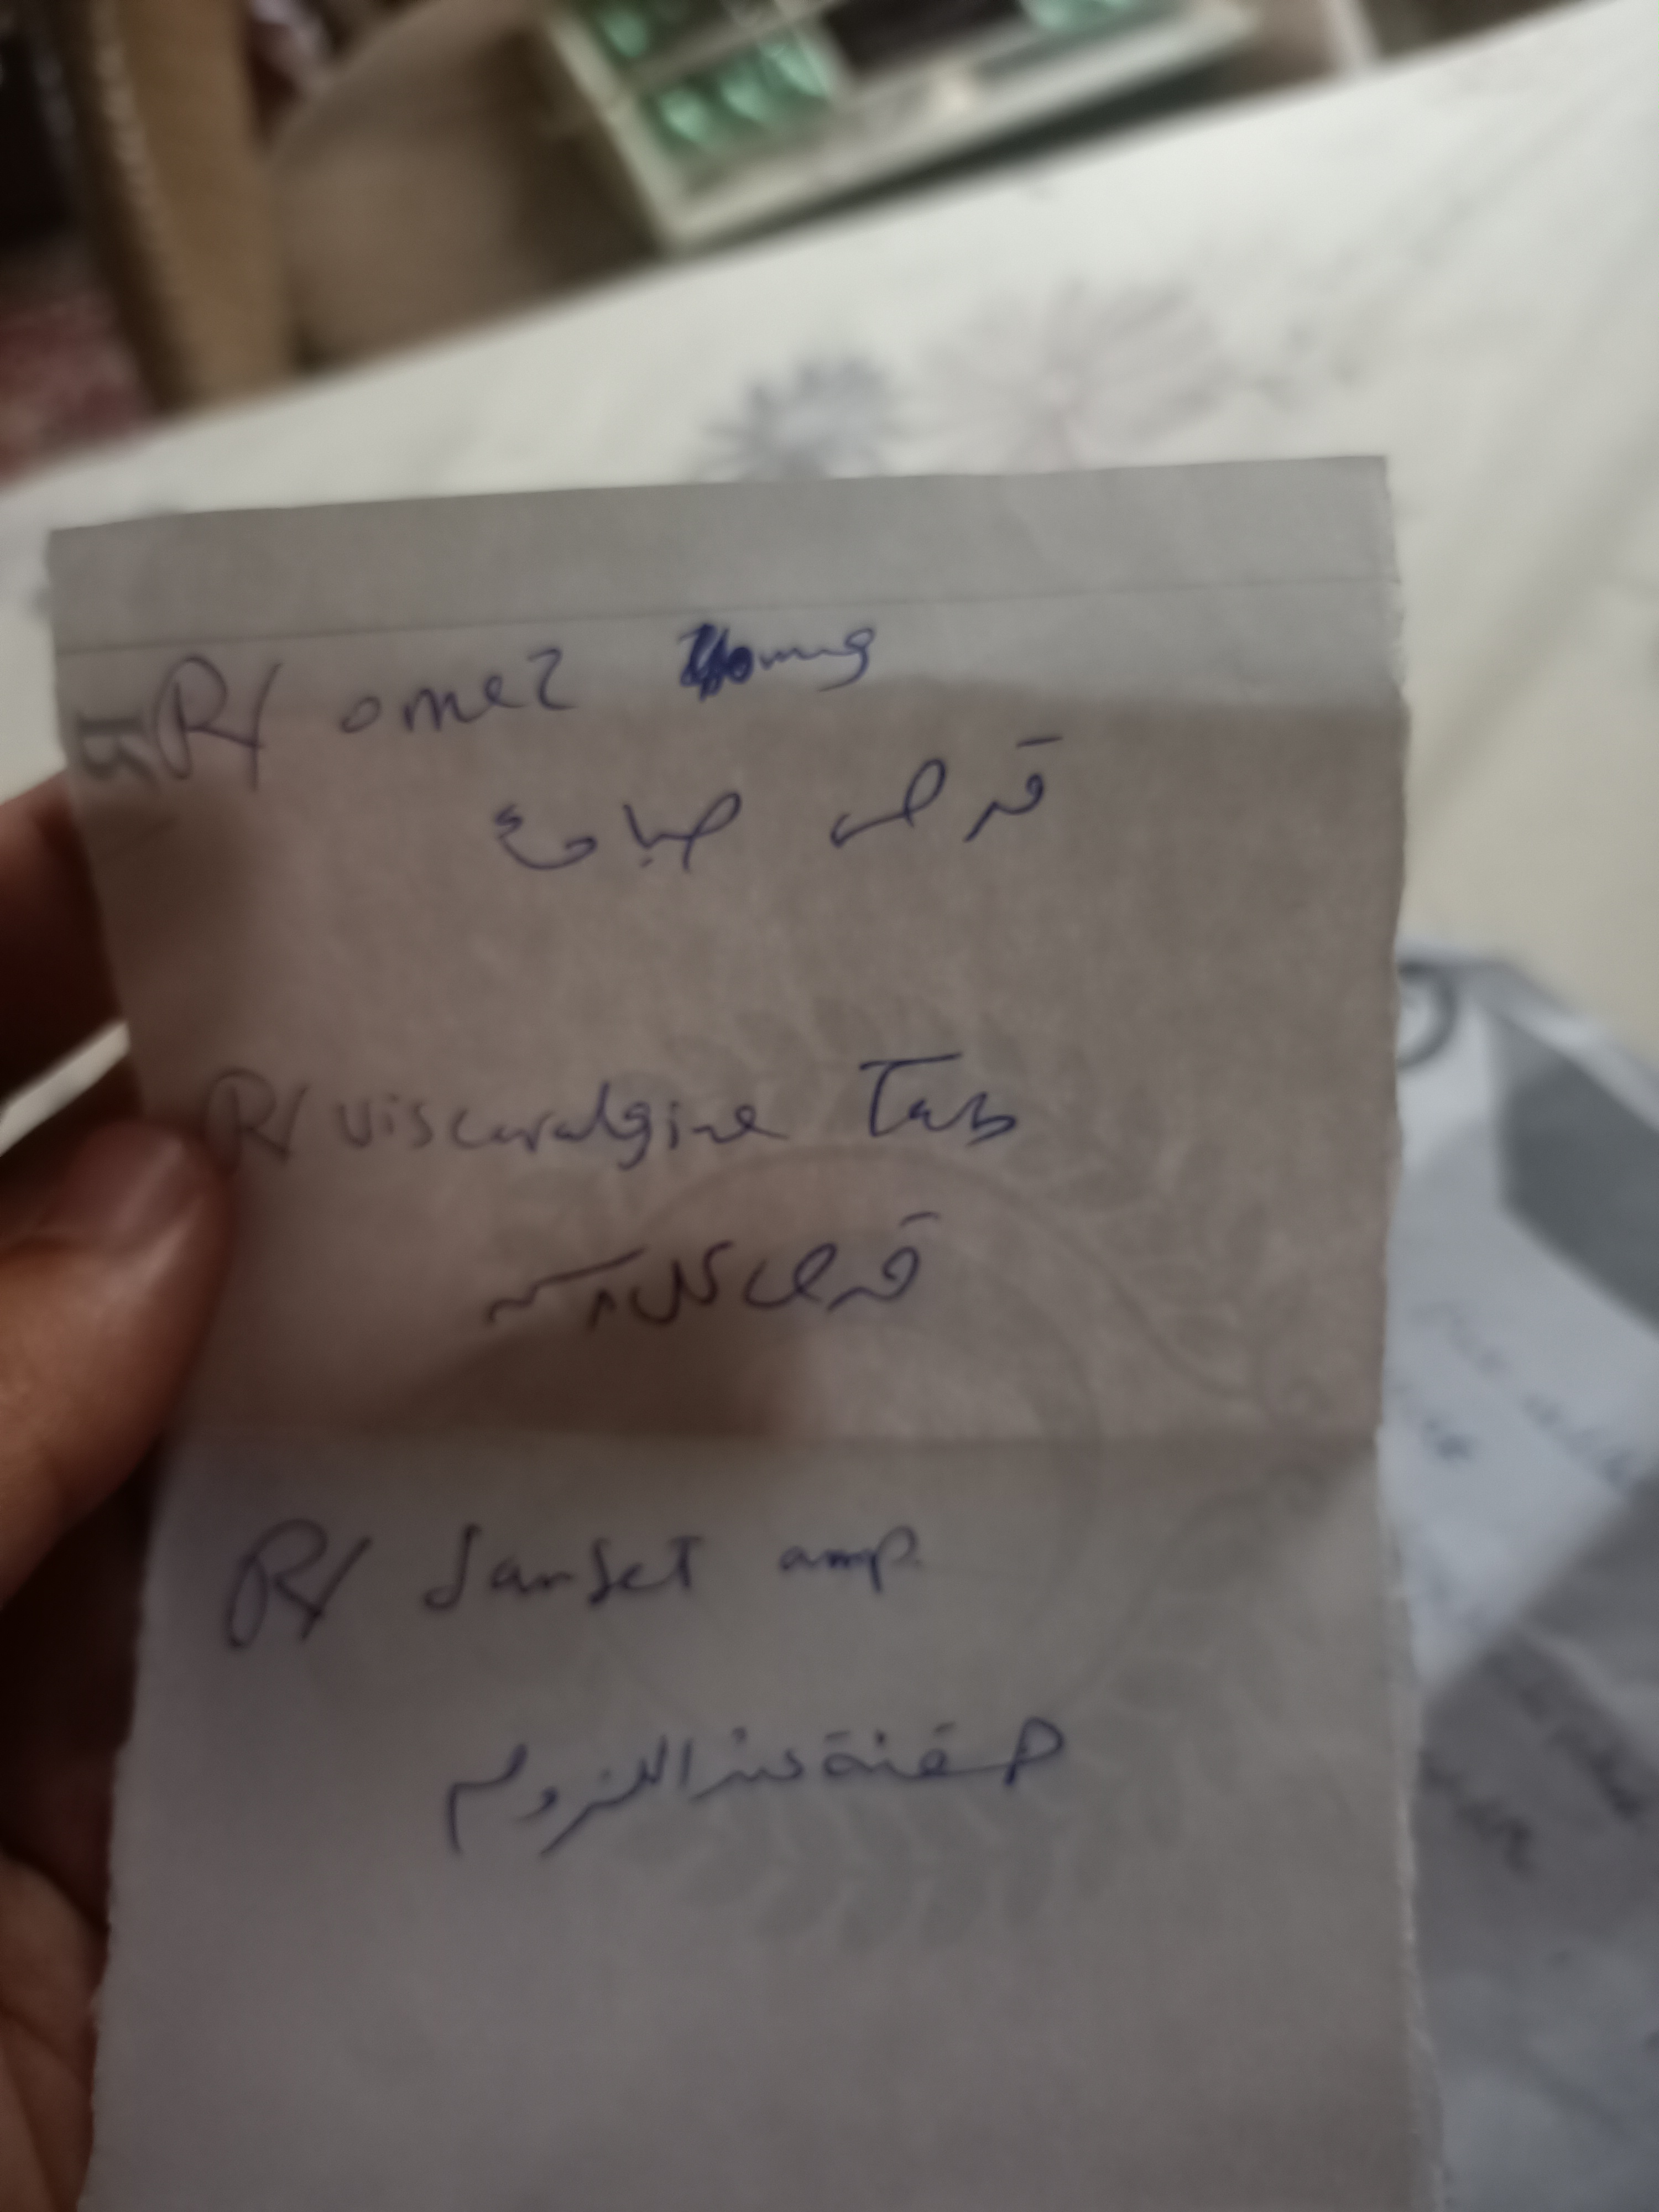 R/ omez 40mg
قرص صباحا
R/ visceralgine Tab
قرص كل ٨ س
R/ danset amp
حقنة عند اللزوم